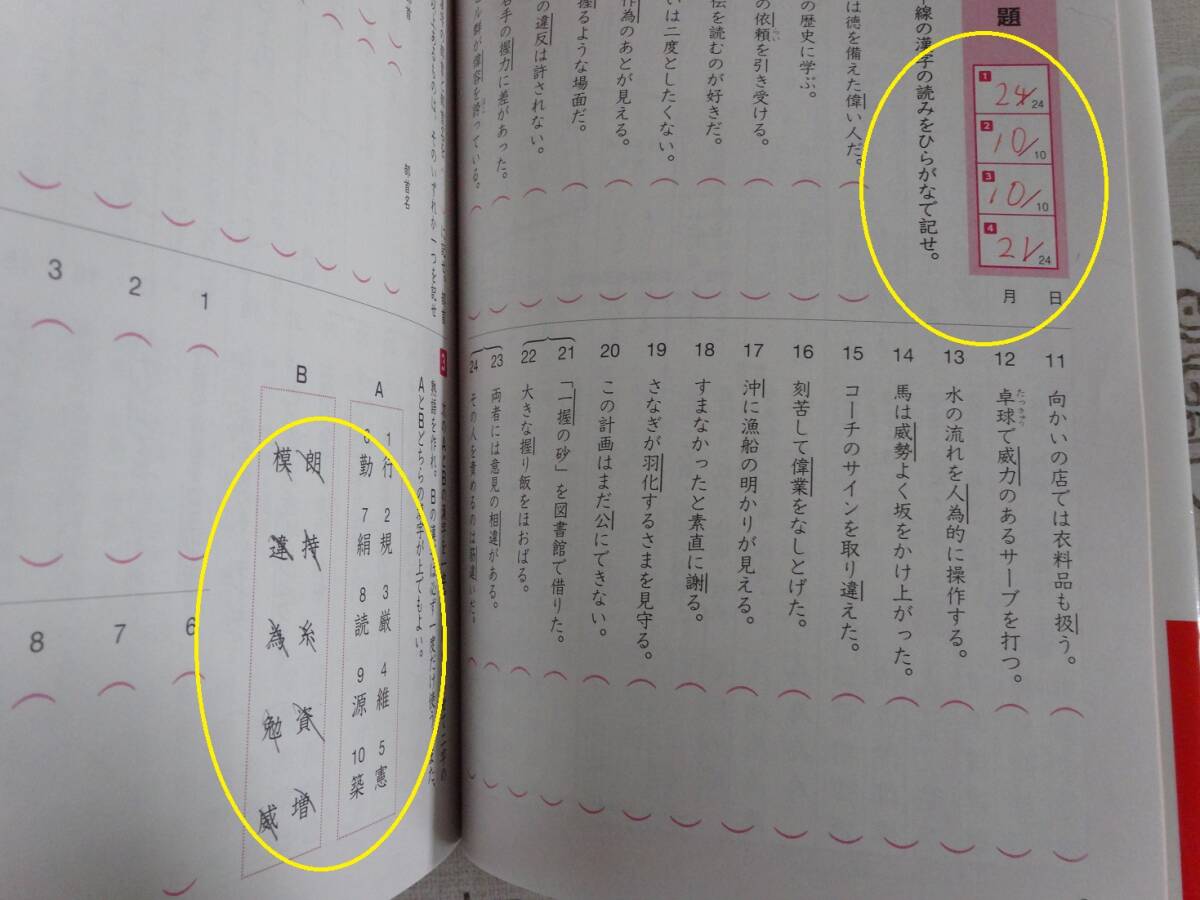 題
1 24/24
2 10/10
3 10/10
4 21/24
月 日
線の漢字の読みをひらがなで記せ。
は徳を備えた偉い人だ。
の歴史に学ぶ。
の依頼を引き受ける。
らい
伝を読むのが好きだ。
いは二度としたくない。
作為のあとが見える。
握るような場面だ。
の違反は許されない。
右手の握力に差があった。
ル群が偉容を誇っている。
11 向かいの店では衣料品も扱う。
12 卓球で威力のあるサーブを打つ。
たっきゅう
13 水の流れを人為的に操作する。
14 馬は威勢よく坂をかけ上がった。
15 コーチのサインを取り違えた。
16 刻苦して偉業をなしとげた。
17 沖に漁船の明かりが見える。
18 すまなかったと素直に謝る。
19 さなぎが羽化するさまを見守る。
20 この計画はまだ公にできない。
21 「一握の砂」を図書館で借りた。
22 大きな握り飯をほおばる。
23 両者には意見の相違がある。
24 その人を責めるのは筋違いだ。
部首名
3
熟語を作れ。
AとBどちらの漢字が上でもよい。
A
1 行 2 規 3 厳 4 維 5 憲
6 勤 7 絹 8 読 9 源 10 築
B
朗 持 糸 資 増
模 違 為 勉 威
1
2
3
6
7
8